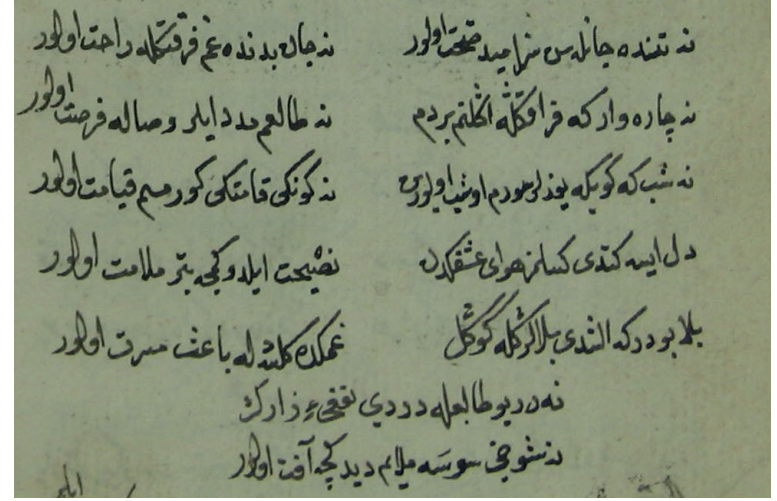 نه تنده جانله سنسز اميد صحت اولور نه جان بدنده غم فرقتكله راحت اولور
نه چاره وار كه فراقكله اكلنم بر دم نه طالعم مدد ايلر وصاله فرصت اولور
نه شب كه كويكه يوز سورمدم او شب اولورم نه كونكى قامتكى كورمسم قيامت اولور
دل ايسه كتدى كسلمز هواى عشقكدن نصيحت ايلدوكجه بتر ملامت اولور
بلا بودر كه الشدى بلالركله كوكل غمكده كلسه دله باعث مسرت اولور
نه در بو طالعله دردي نفعىء زارك
نه شوخى سوسه ملايم ديدكچه آفت اولور